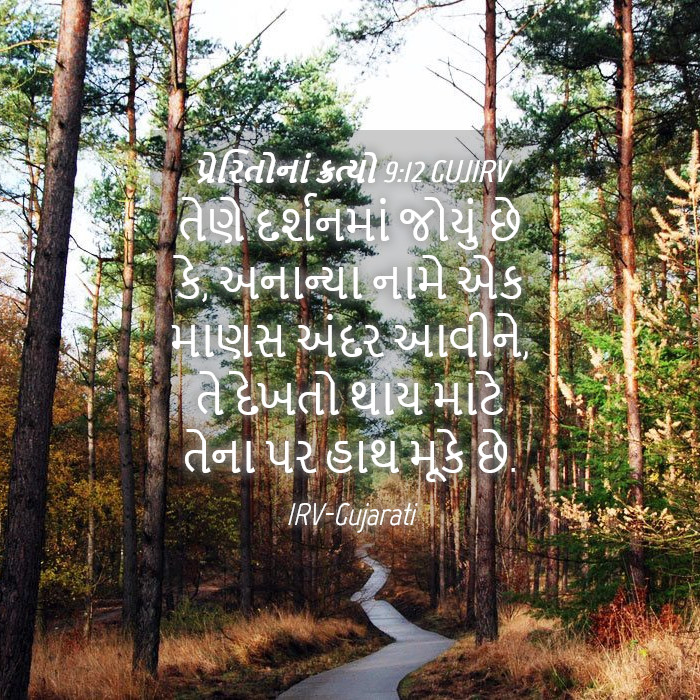 પ્રેરિતોનાં કૃત્યો 9:12 GUJIRV
તેણે દર્શનમાં જોયું છે
કે, અનાન્યા નામે એક
માણસ અંદર આવીને,
તે દેખતો થાય માટે
તેના પર હાથ મૂકે છે.
IRV-Gujarati